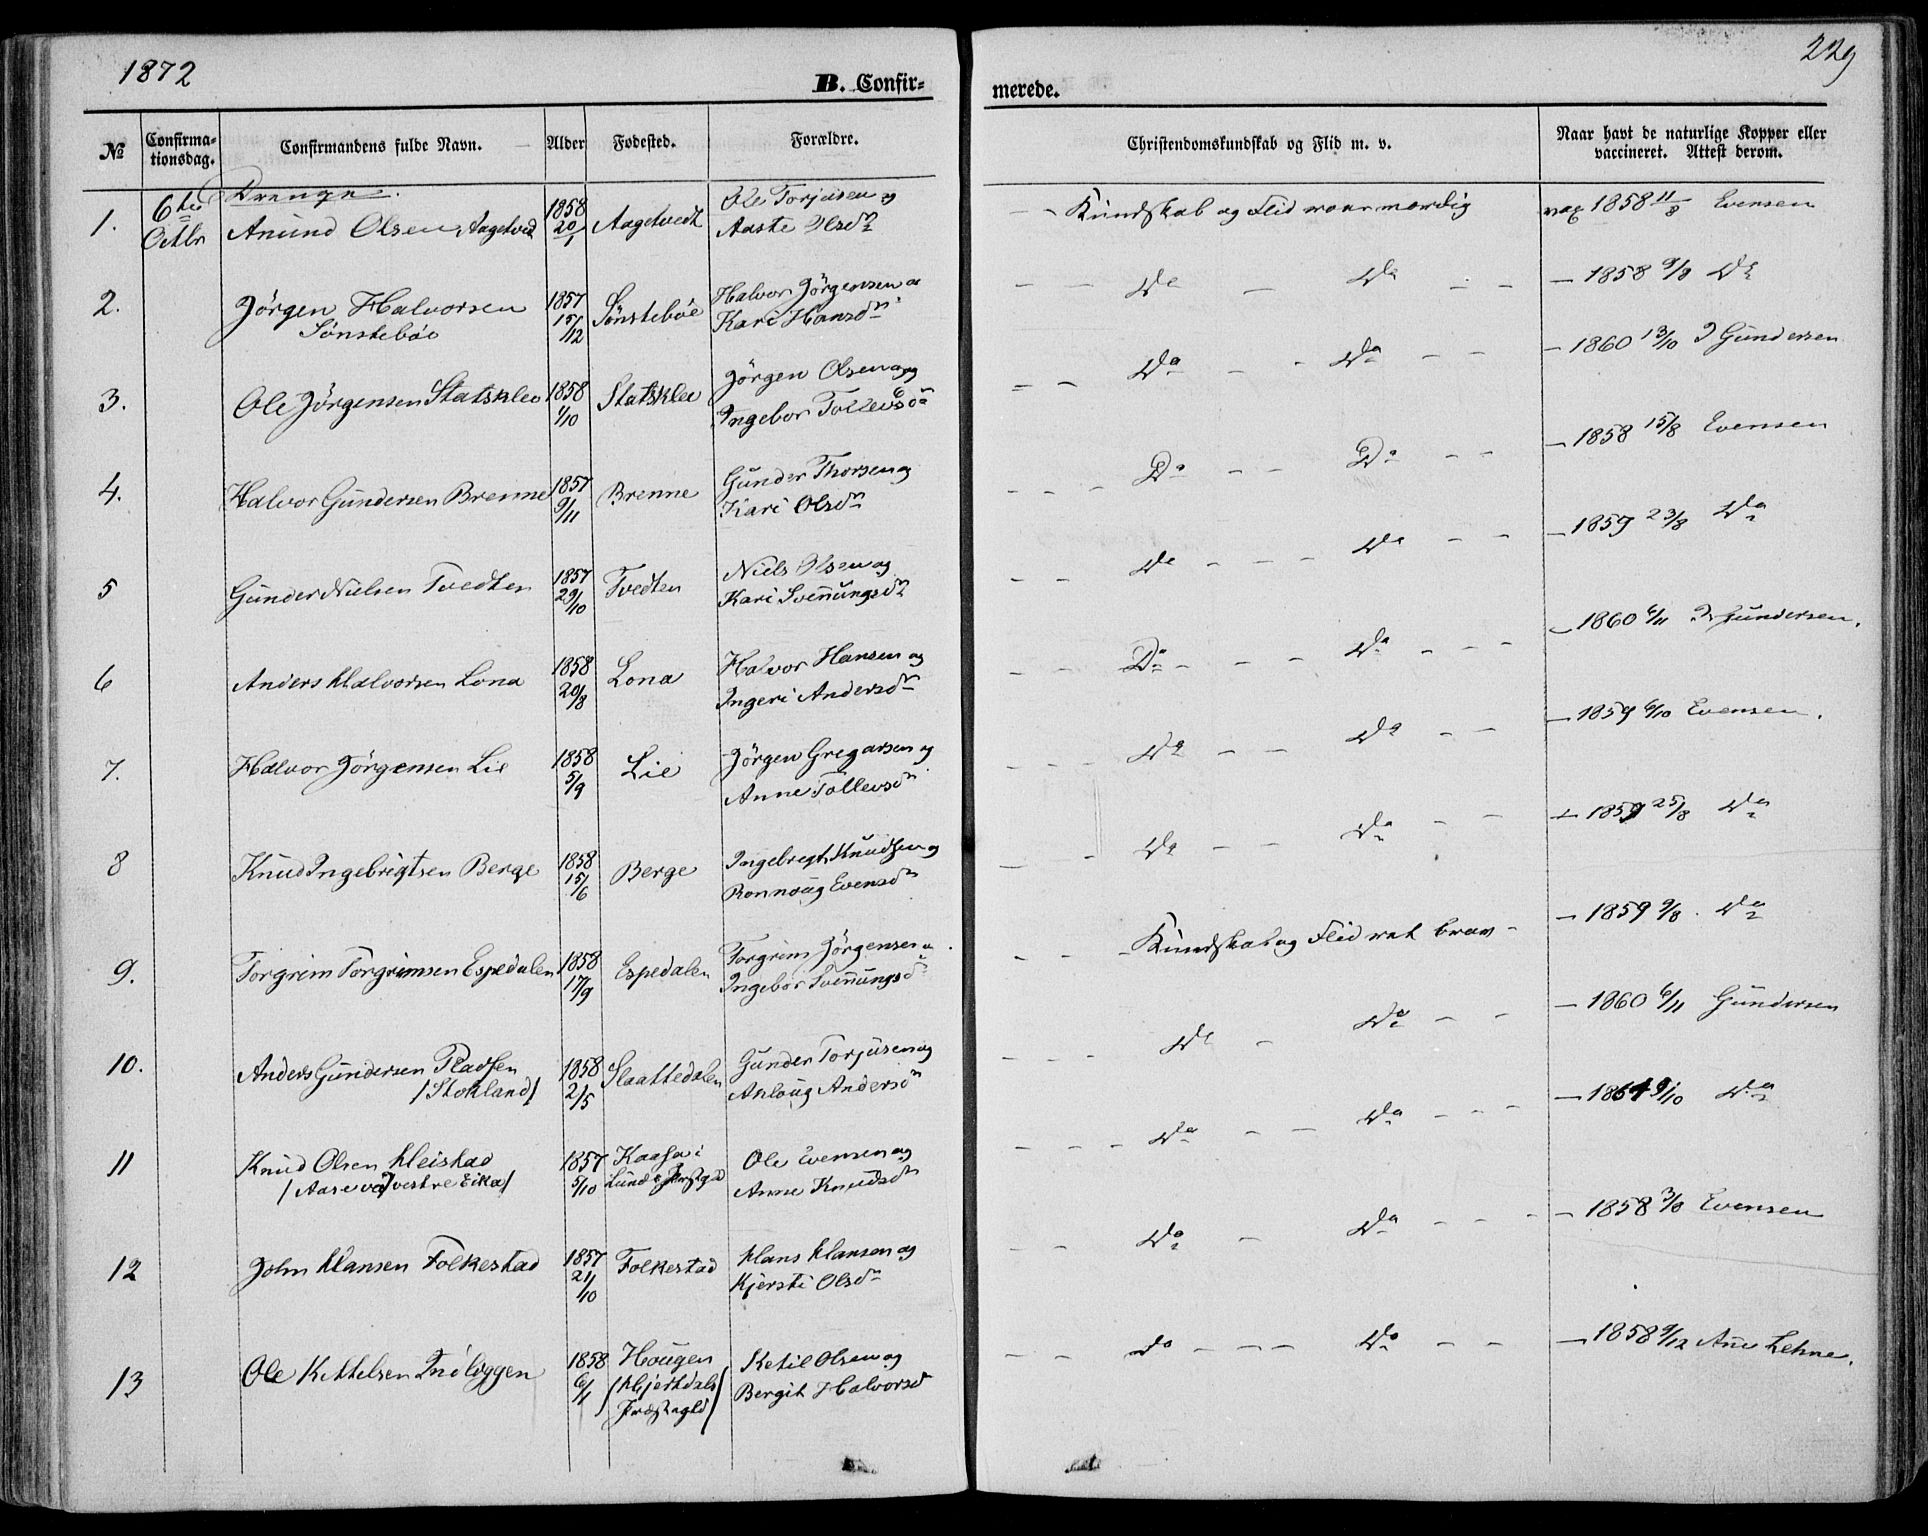 1872
B. Confir=
№ Confirma-tionsdag. Confirmandens fulde Navn. Alder Fødested. Forældre.
Drenge.
1. 6te Octbr Anund Olsen Aagetved 1858 20/1 Aagetvedt Ole Torjusen og
Aaste Olsdn
2. Jörgen Halvorsen 1857 15/12 Sönstebøe Halvor Jörgensen o
Sönstebøe Kari Hansdn
3. Ole Jörgensen Statsklev 1858 1/10 Statsklev Jörgen Olsen og
Ingebor Tollevsdn
4. Halvor Gundersen Brenne 1857 9/11 Brenne Gunder Thorsen og
Kari Olsdn
5 Gunder Nielsen Tvedten 1857 29/10 Tvedten Niels Olsen og
Kari Svennungsdn
6 Anders Halvorsen Lona 1858 20/8 Lona Halvor Hansen og
Ingeri Andersdn
7. Halvor Jörgensen Lie 1858 5/9 Lie Jörgen Gregarsen og
Anne Tollevsdn
8 Knud Ingebrigtsen Berge 1858 15/6 Berge Ingebregt Knudsen og
Ronnoug Evensdn
9. Torgrim Torgrimsen Espedalen 1858 17/9 Espedalen Torgrim Jörgensen o
Ingebor Svennungsdn
10. Anders Gundersen Pladsen 1858 2/5 Slaattedalen Gunder Torjusen og
/Stokland/ Anloug Andersdn
11 Knud Olsen Heistad 1857 5/10 Kaasa i Ole Evensen og
/Aase vestre Eika/ Lunde Anne Knudsdn
12 John Hansen Folkestad 1857 21/10 Folkestad Hans Hansen og
Kjersti Olsdn
13 Ole Kittelsen 1858 6/1 Hougen Ketil Olsen og
/Hjertdals Bergit Halvorsd
Præstegld/
229
merede.
Christendomskundskab og Flid m. v. Naar havt de naturlige Kopper eller
vaccineret. Attest derom.
- - Kundskab og Flid vax 1858 11/8 Evensen
- - Do - Do - - - 1858 9/8 Do
= - Do - - Do - - - 1860 13/10 J Gundersen
- - - Do - - Do - - - 1858 15/8 Evensen
- - Do - - - Do - - - 1859 23/8 Do
- - Do - - - Do - - - - 1860 6/11 J Gundersen.
- - - Do - - Do - - - 1859 6/10 Evensen.
- - Do - - Do - - - 1859 25/8 Do
- - Kundskab og Flid ret brav - - 1859 9/8. Do
- - - Do - Do - - - 1860 6/11 Gundersen
- - - Do - - Do - - - - Do
- - Do - Do - - - - 1858 3/8 Evensen
- - do - - - - Do - - - 1858 9/12 Lehne.